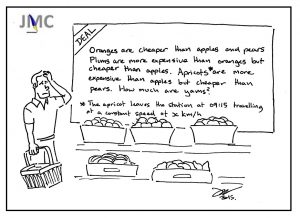 JMC
DEAL
Oranges are cheaper than apples and pears
Plums are more expensive than oranges but
cheaper than apples. Apricots are more
expensive than apples but cheaper than
pears. How much are yams?
* The apricot leaves the station at 09:15 travelling
at a constant speed of x km/h
2015.